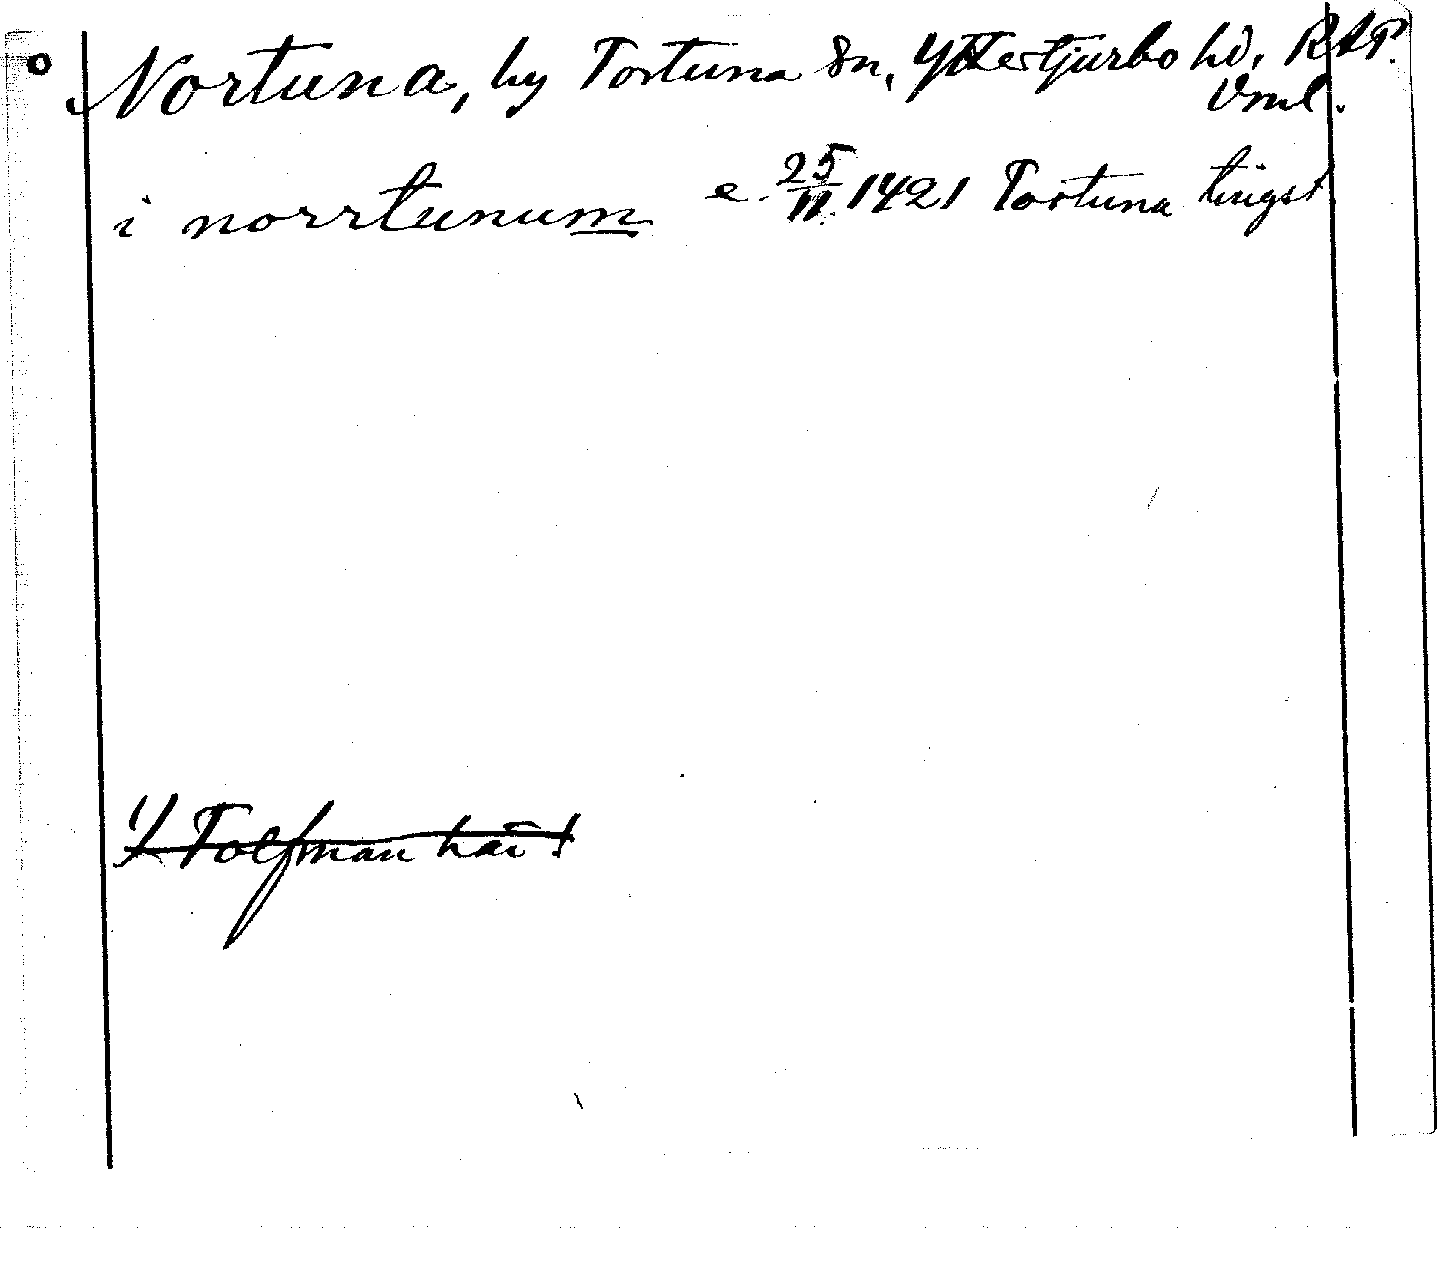 Nortuna, by Tortuna sn, Yttertjurbo hd, RAP.
Vml.
i norrtunum e. 25/11 1421 Tortuna tingst
Tolfman här!